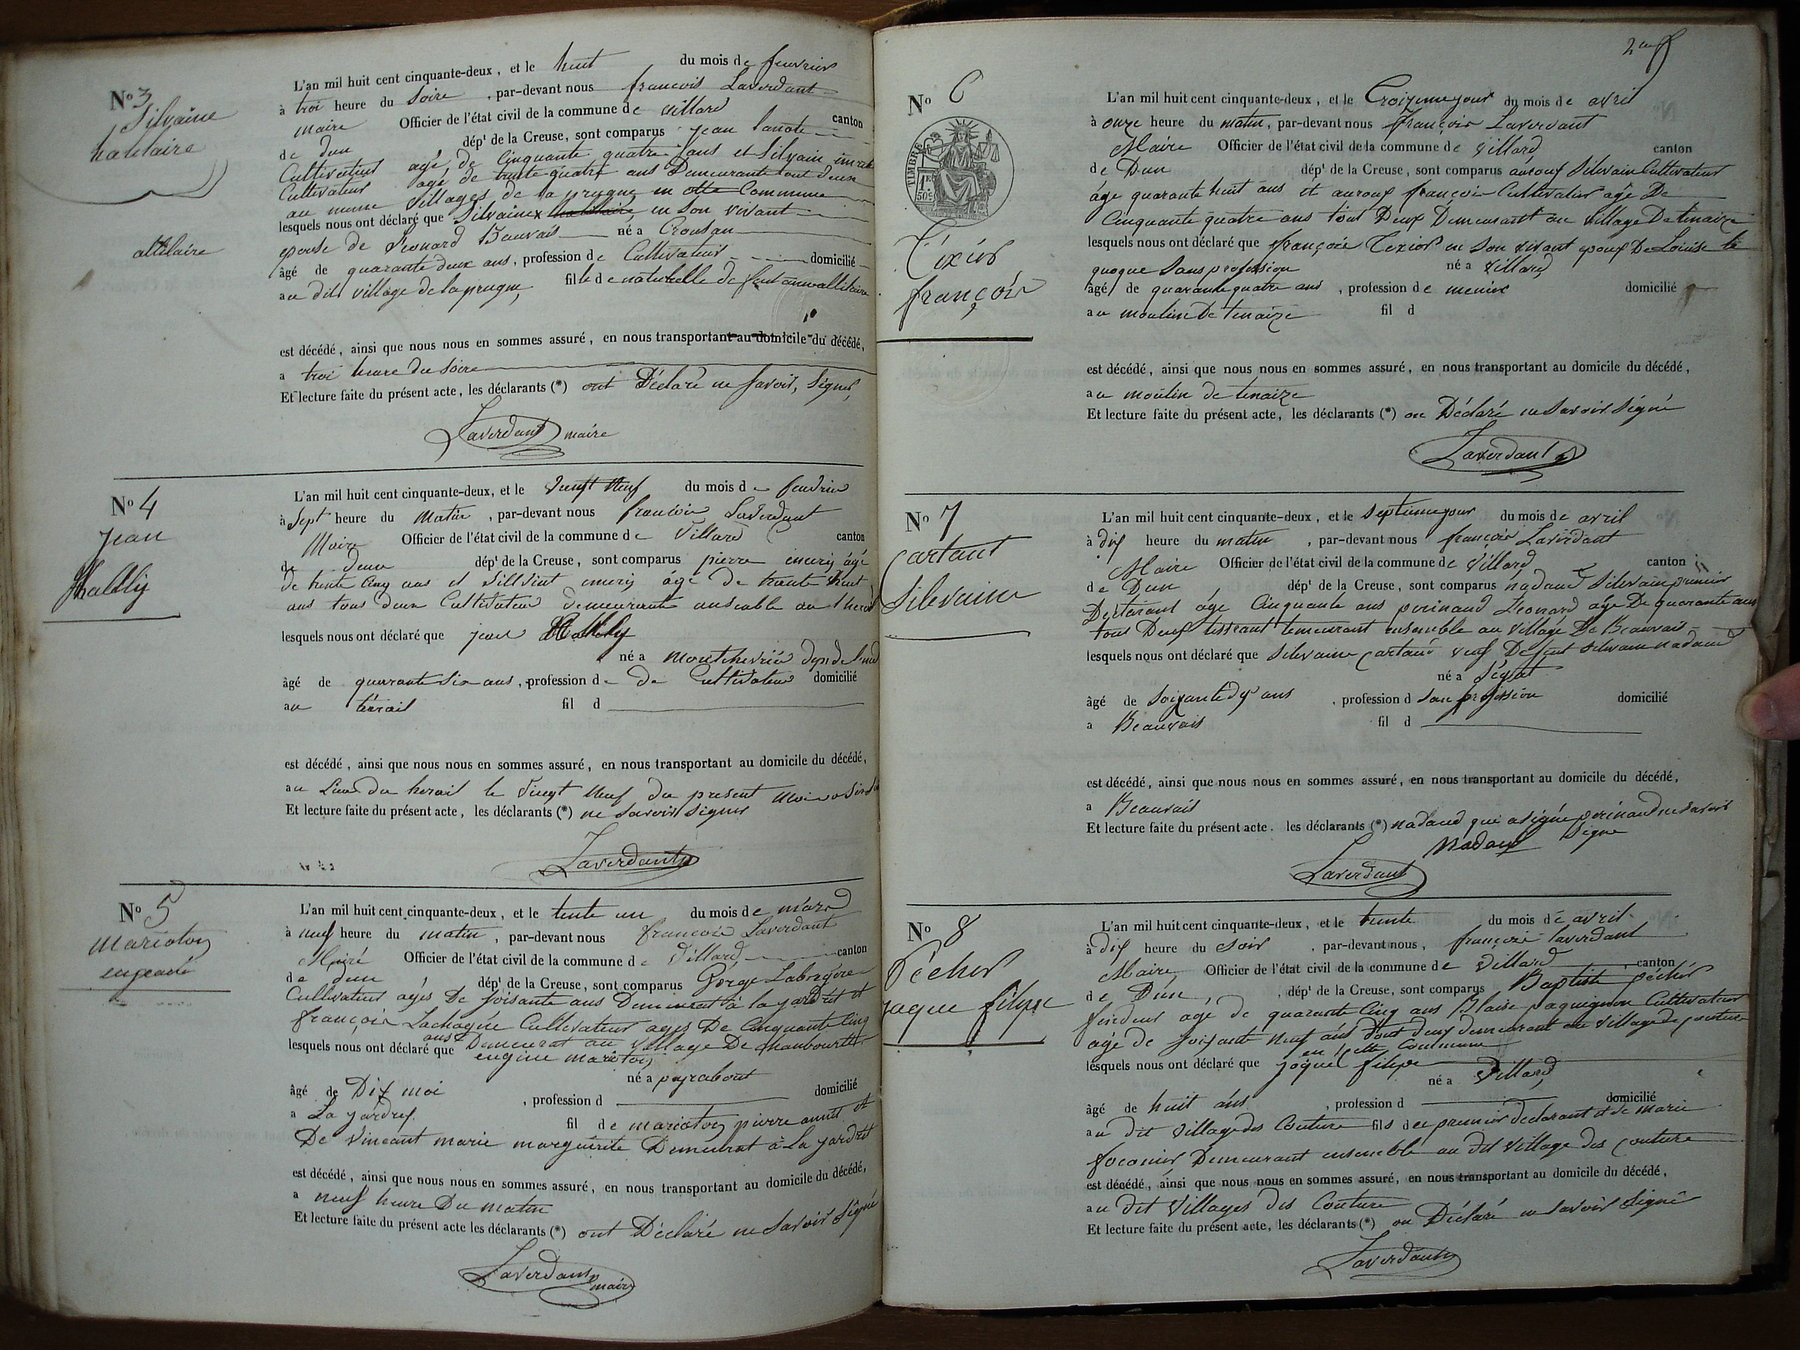 No 3
Silvaine
hatilaire
attilaire
L'an mil huit cent cinquante-deux, et le huit du mois de feuvrier
à troi heure du Soire, par-devant nous francois Laverdant
maire Officier de l'état civil de la commune de villard canton
de dun dépt de la Creuse, sont comparus jean
Cultivateur agé de Cinquante quatre ans et Silvain
Cultivateur agé de trente quatre ans Demeurante tout deux
au meme villages de la prugne en Commune
lesquels nous ont déclaré que Silvaine en Son vivant
epouse de Leonard Beauvais né a Crousan
âgé de quarante deux ans, profession de Cultivateur domicilié
au dit village de la prugne, fille de naturelle de
est décédé, ainsi que nous nous en sommes assuré, en nous transportant au domicile du décédé,
a troi heure du Soire
Et lecture faite du présent acte, les déclarants (*) ont Déclaré ne Savoir, Signer,
Laverdant maire
No 4
Jean
L'an mil huit cent cinquante-deux, et le Vingt Neuf du mois de feuvrier
à Sept heure du Matin, par-devant nous francois Laverdant
Maire Officier de l'état civil de la commune de Villard canton
de deun dépt de la Creuse, sont comparus pierre agé
de trente Cinq ans et agé De trante huit
ans tous deux Cultivateur demeurante ansemble au
lesquels nous ont déclaré que jean
né a
âgé de quarante Six ans, profession de De Cultivateur domicilié
au fil d
est décédé, ainsi que nous nous en sommes assuré, en nous transportant au domicile du décédé,
au Lieu du le Vingt Neuf du present Moi
Et lecture faite du présent acte, les déclarants (*) ne Savoir Signer
Laverdant
No 5
Marioton
eugene
L'an mil huit cent cinquante-deux, et le tente un du mois de mars
à neuf heure du matin, par-devant nous francois Laverdant
Maire Officier de l'état civil de la commune de Villard canton
de dun dépt de la Creuse, sont comparus George
Cultivateur agés De soisante ans Demeurat à la et
françoir Cultivateur agés De Cinquante Cinq
ans Demeurat au village De
lesquels nous ont déclaré que eugene marioton
né a peyrabout
âgé de Dix moi, profession d domicilié
a La fil de marioton pierre et
De Vincent marie marguerite Demeurat à La
est décédé, ainsi que nous nous en sommes assuré, en nous transportant au domicile du décédé,
a neuf heure Du matin
Et lecture faite du présent acte les déclarants (*) ont Déclaré ne Savoir Signé
Laverdant maire
No 6
TIMBRE
Tixier
françoir
L'an mil huit cent cinquante-deux, et le Croizieme jour du mois de avril
à onze heure du matin, par-devant nous françoir Laverdant
Maire Officier de l'état civil de la commune de Villard canton
de Dun dépt de la Creuse, sont comparus auroux Silvain Cultivateur
âge quarante huit ans et auroux françoir Cultivateur âge De
Cinquante quatre ans tous Deux Demeurant au village De tinaize
lesquels nous ont déclaré que françoir Texier en Son vivant epoux De Louise
Sans profession né a Villard
âgé de quarante quatre ans, profession de menier domicilié
au moulin De tinaize fil d
est décédé, ainsi que nous nous en sommes assuré, en nous transportant au domicile du décédé,
au moulin de tinaize
Et lecture faite du présent acte, les déclarants (*) on Déclaré ne Savoir Signé
Laverdant
No 7
Cartaut
Silevaine
L'an mil huit cent cinquante-deux, et le Septieme jour du mois de avril
à dix heure du matin, par-devant nous françoir Laverdant
Maire Officier de l'état civil de la commune de Villard canton
de Dun dépt de la Creuse, sont comparus nadaud Silevain premier
Déclarant âge Cinquante ans perinaud Leonard âge De quarante ans
tous Deux tisseant ensemble au village De Beauvais
lesquels nous ont déclaré que Silevaine Cartaud veuf De feut Silvain nadaud
né a
âgé de Soizante dix ans, profession d San profession domicilié
a Beauvais fil d
est décédé, ainsi que nous nous en sommes assuré, en nous transportant au domicile du décédé,
a Beauvais
Et lecture faite du présent acte. les déclarants (*) nadaud qui a Signé perinaud ne Savoir
Signe
Nadaud
Laverdant
No 8
Pécher
jaque filipe
L'an mil huit cent cinquante-deux, et le trente du mois de avril
à dix heure du Soir, par-devant nous, françoir laverdant
Maire Officier de l'état civil de la commune de Villard, canton
de Dun, dépt de la Creuse, sont comparus Baptiste pécher
age de quarante Cinq ans Blaise paquignon Cultivateur
age de soixante neuf ans tout deux demeurant au village de Couture
en Cette Commune
lesquels nous ont déclaré que filipe
né a Villard,
âgé de huit ans, profession d domicilié
au dit village des Couture fils de premier declarant et de Marie
Demeurant ensemble au dit village des Couture
est décédé, ainsi que nous nous en sommes assuré, en nous transportant au domicile du décédé,
au dit Villages des Couture
Et lecture faite du présent acte, les déclarants (*) on Déclaré ne Savoir Signé
Laverdant